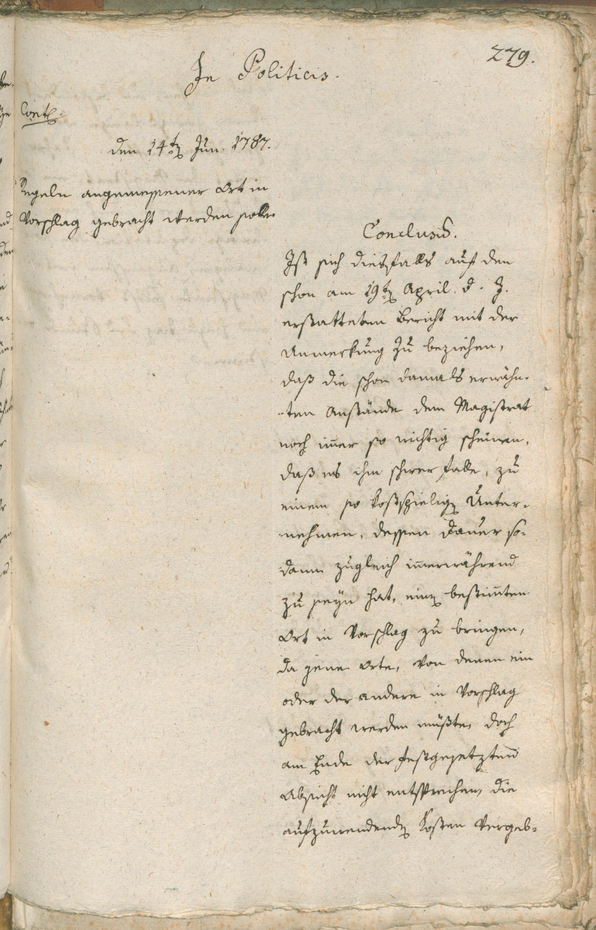 279.
In Politicis.
Cont.
den 14t Jun. 1787.
Regeln angemessener Ort in
Vorschlag gebracht werden solle.
Conclusum.
Ist sich diesfalls auf den
schon am 19t April d. J.
erstatteten Bericht mit der
Anmerkung zu beziehen,
daß die schon damals erwähn-
-ten Anstände dem Magistrat
noch immer so wichtig scheinen,
daß es ihm schwer falle, zu
einem so kostspieligen Unter-
-nehmen, dessen Dauer so-
dann zugleich immerwährend
zu seyn hat, einen bestimmten
Ort in Vorschlag zu bringen,
da jene Orte, von denen ein
oder der andere in Vorschlag
gebracht werden müßte, doch
am Ende der festgesetzten
Absicht nicht entsprechen, die
aufzuwendenden Kosten vergeb-